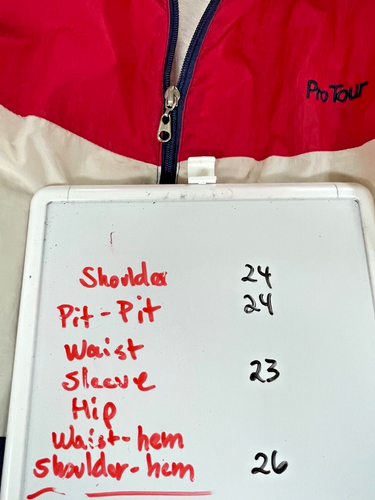 Pro Tour
Shoulder 24
Pit-Pit 24
Waist
Sleeve 23
Hip
Waist-hem
Shoulder-hem 26